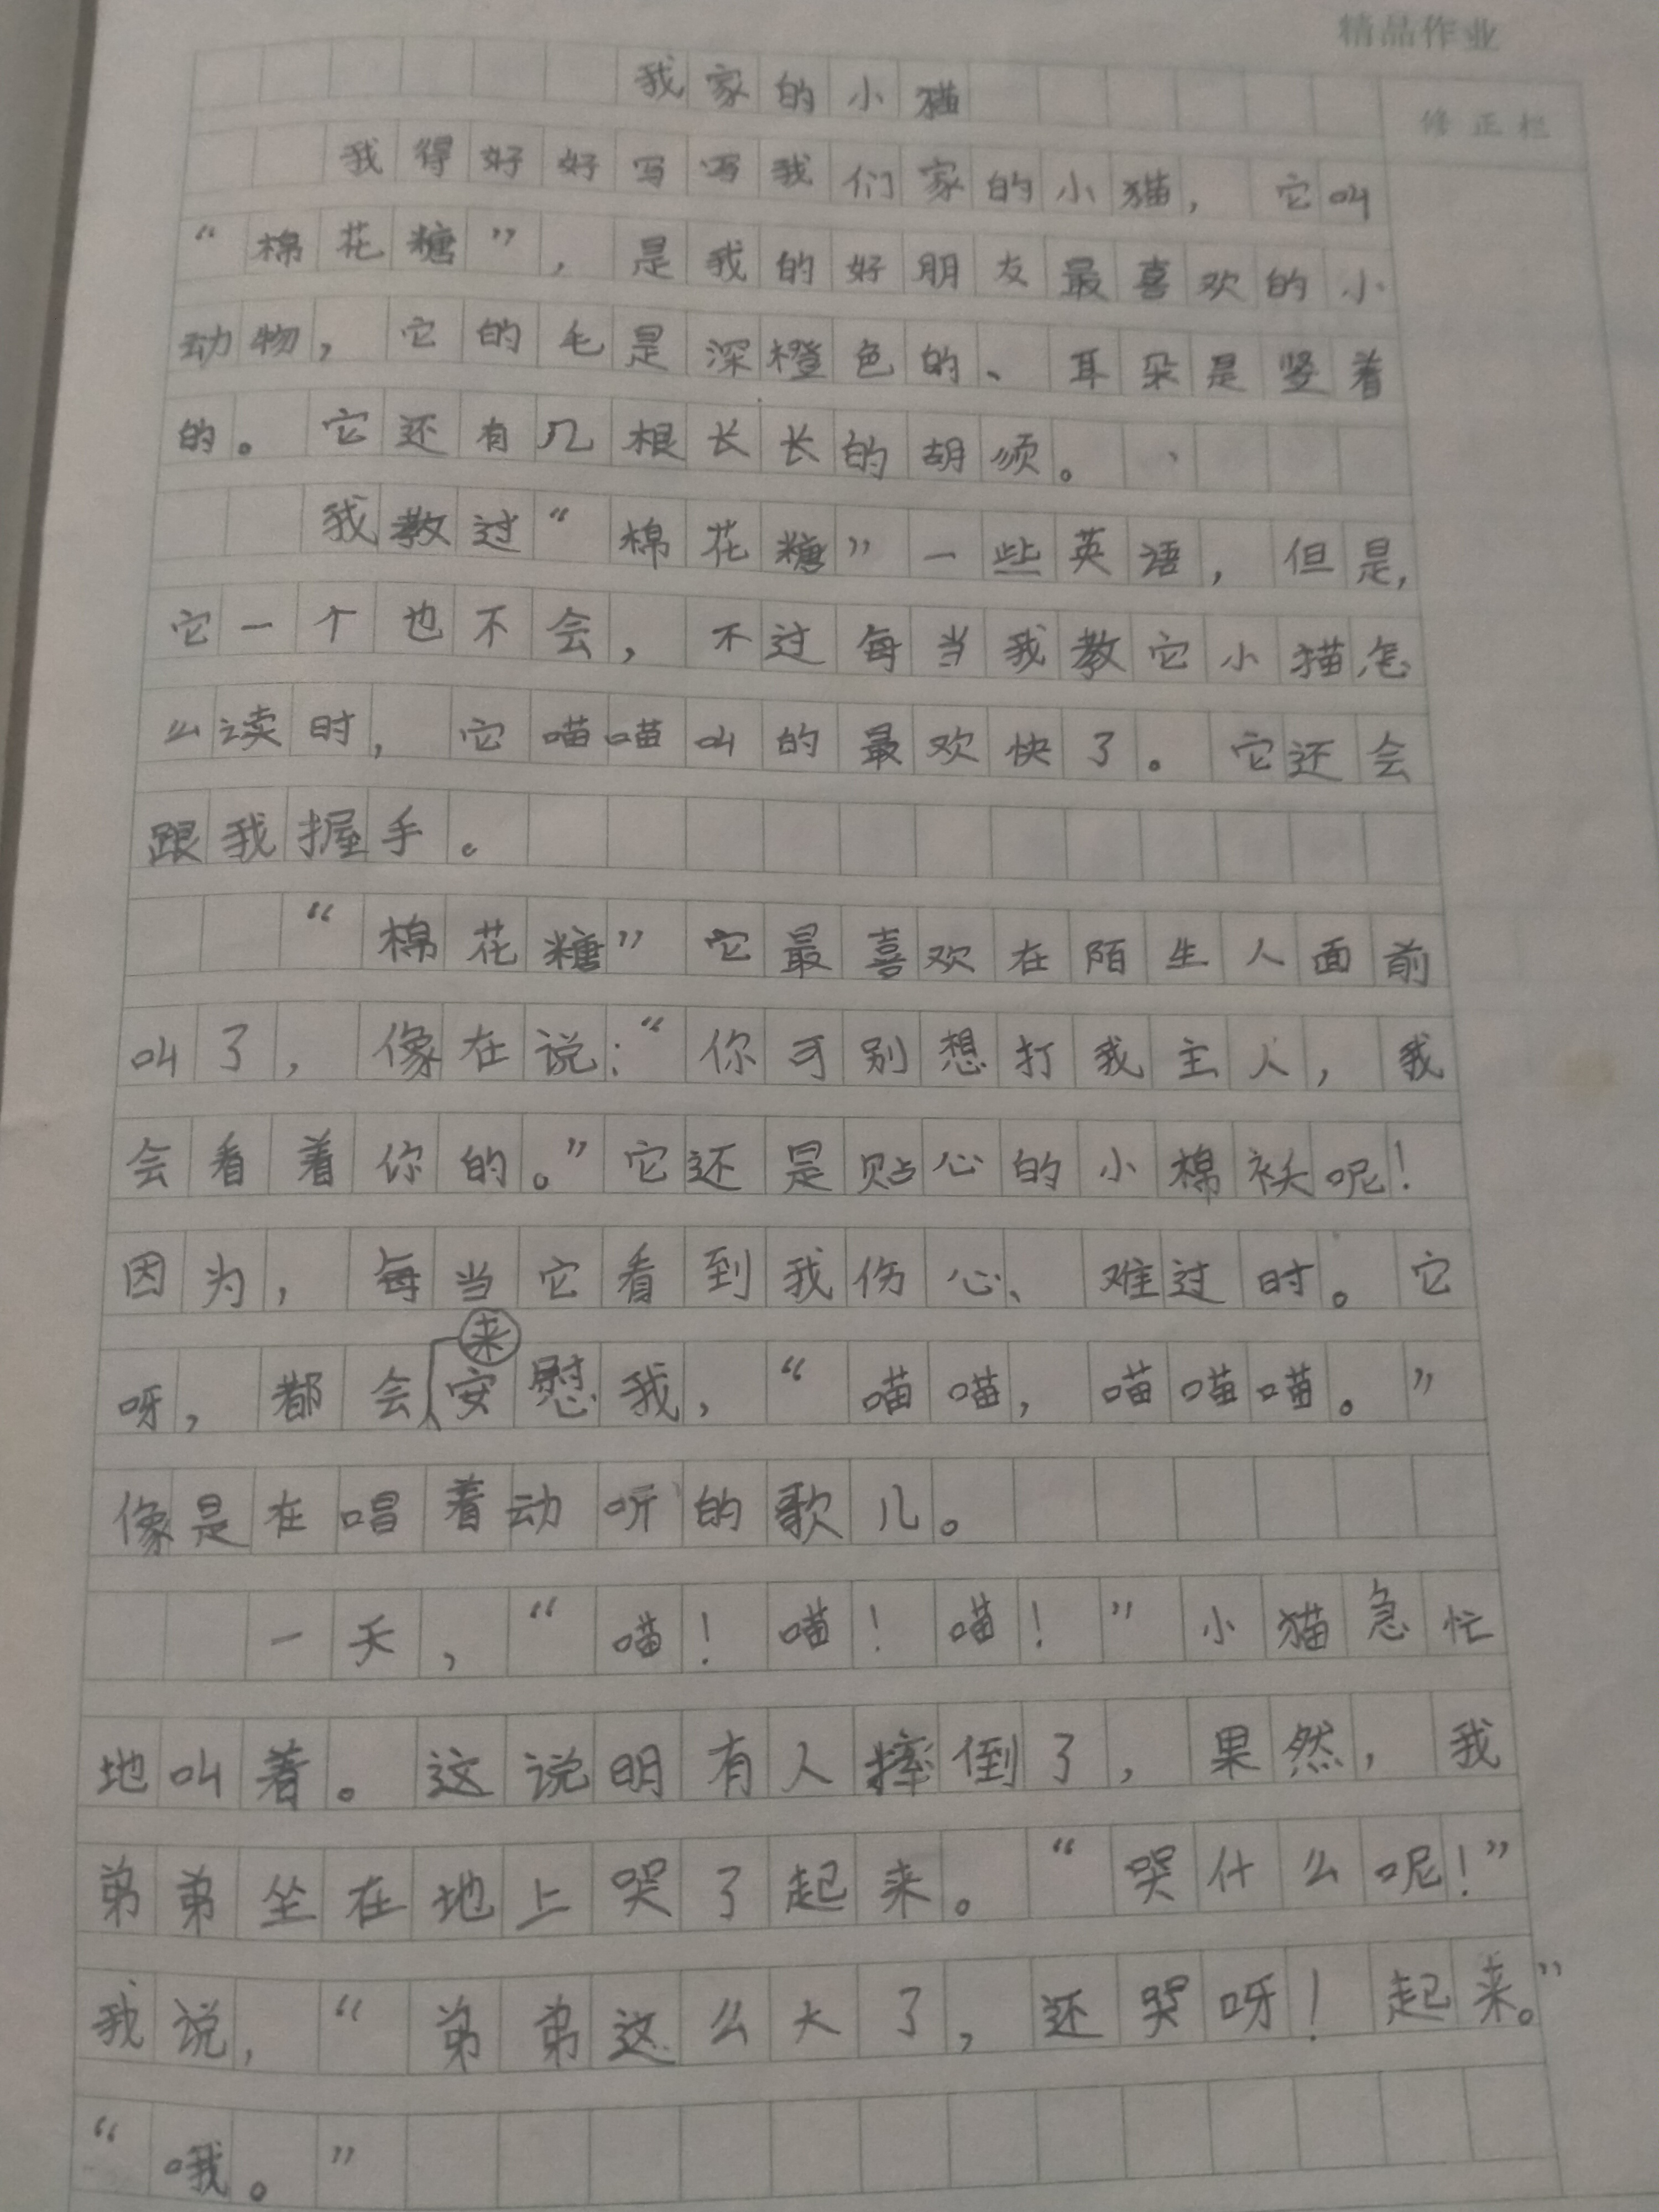 精品作业
我家的小猫
修正栏
我得好好写写我们家的小猫，它叫
“棉花糖”，是我的好朋友最喜欢的小
动物，它的毛是深橙色的、耳朵是竖着
的。它还有几根长长的胡须。
我教过“棉花糖”一些英语，但是，
它一个也不会，不过每当我教它小猫怎
么读时，它喵喵叫的最欢快了。它还会
跟我握手。
“棉花糖”它最喜欢在陌生人面前
叫了，像在说：“你可别想打我主人，我
会看着你的。”它还是贴心的小棉袄呢！
因为，每当它看到我伤心、难过时。它
呀，都会来安慰我，“喵喵，喵喵喵。”
像是在唱着动听的歌儿。
一天，“喵！喵！喵！”小猫急忙
地叫着。这说明有人摔倒了，果然，我
弟弟坐在地上哭了起来。“哭什么呢！”
我说，“弟弟这么大了，还哭呀！起来。”
“哦。”